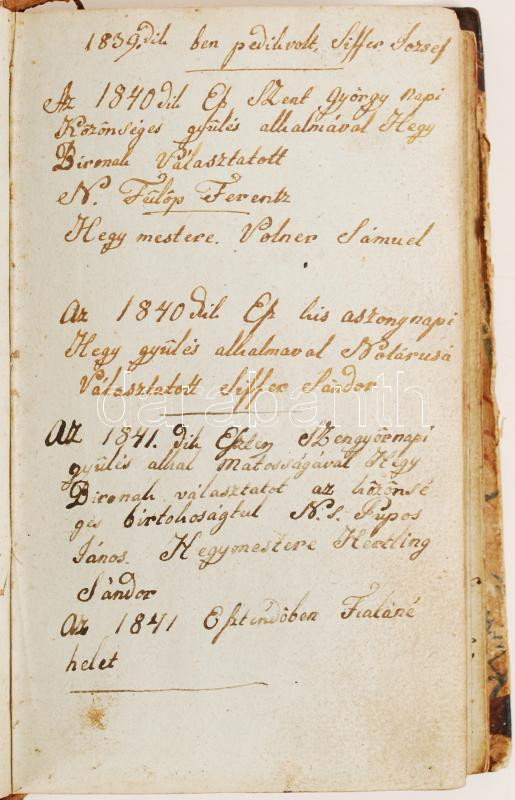 1839.dik ben pedik volt, Siffer Jozsef
Az 1840dik Esz Szent györgy napi
Közönséges gyülés alkalmával Hegy
Bironak Választatott
N. Fülöp Ferentz
Hegy mestere. Volner Sámuel
az 1840dik Esz kis aszonynapi
Hegy gyülés alkalmaval Notárusá
Választatott Siffer Sándor
darabanth
Az 1841. dik Eszten Szengyörnapi
gyülés alkal matosságával Hegy
Bironak választatot az közönsé
ges birtokoságtul N. s. Pupos
János. Hegymestere Hertling
Sándor
az 1841 Esztendöben
helet